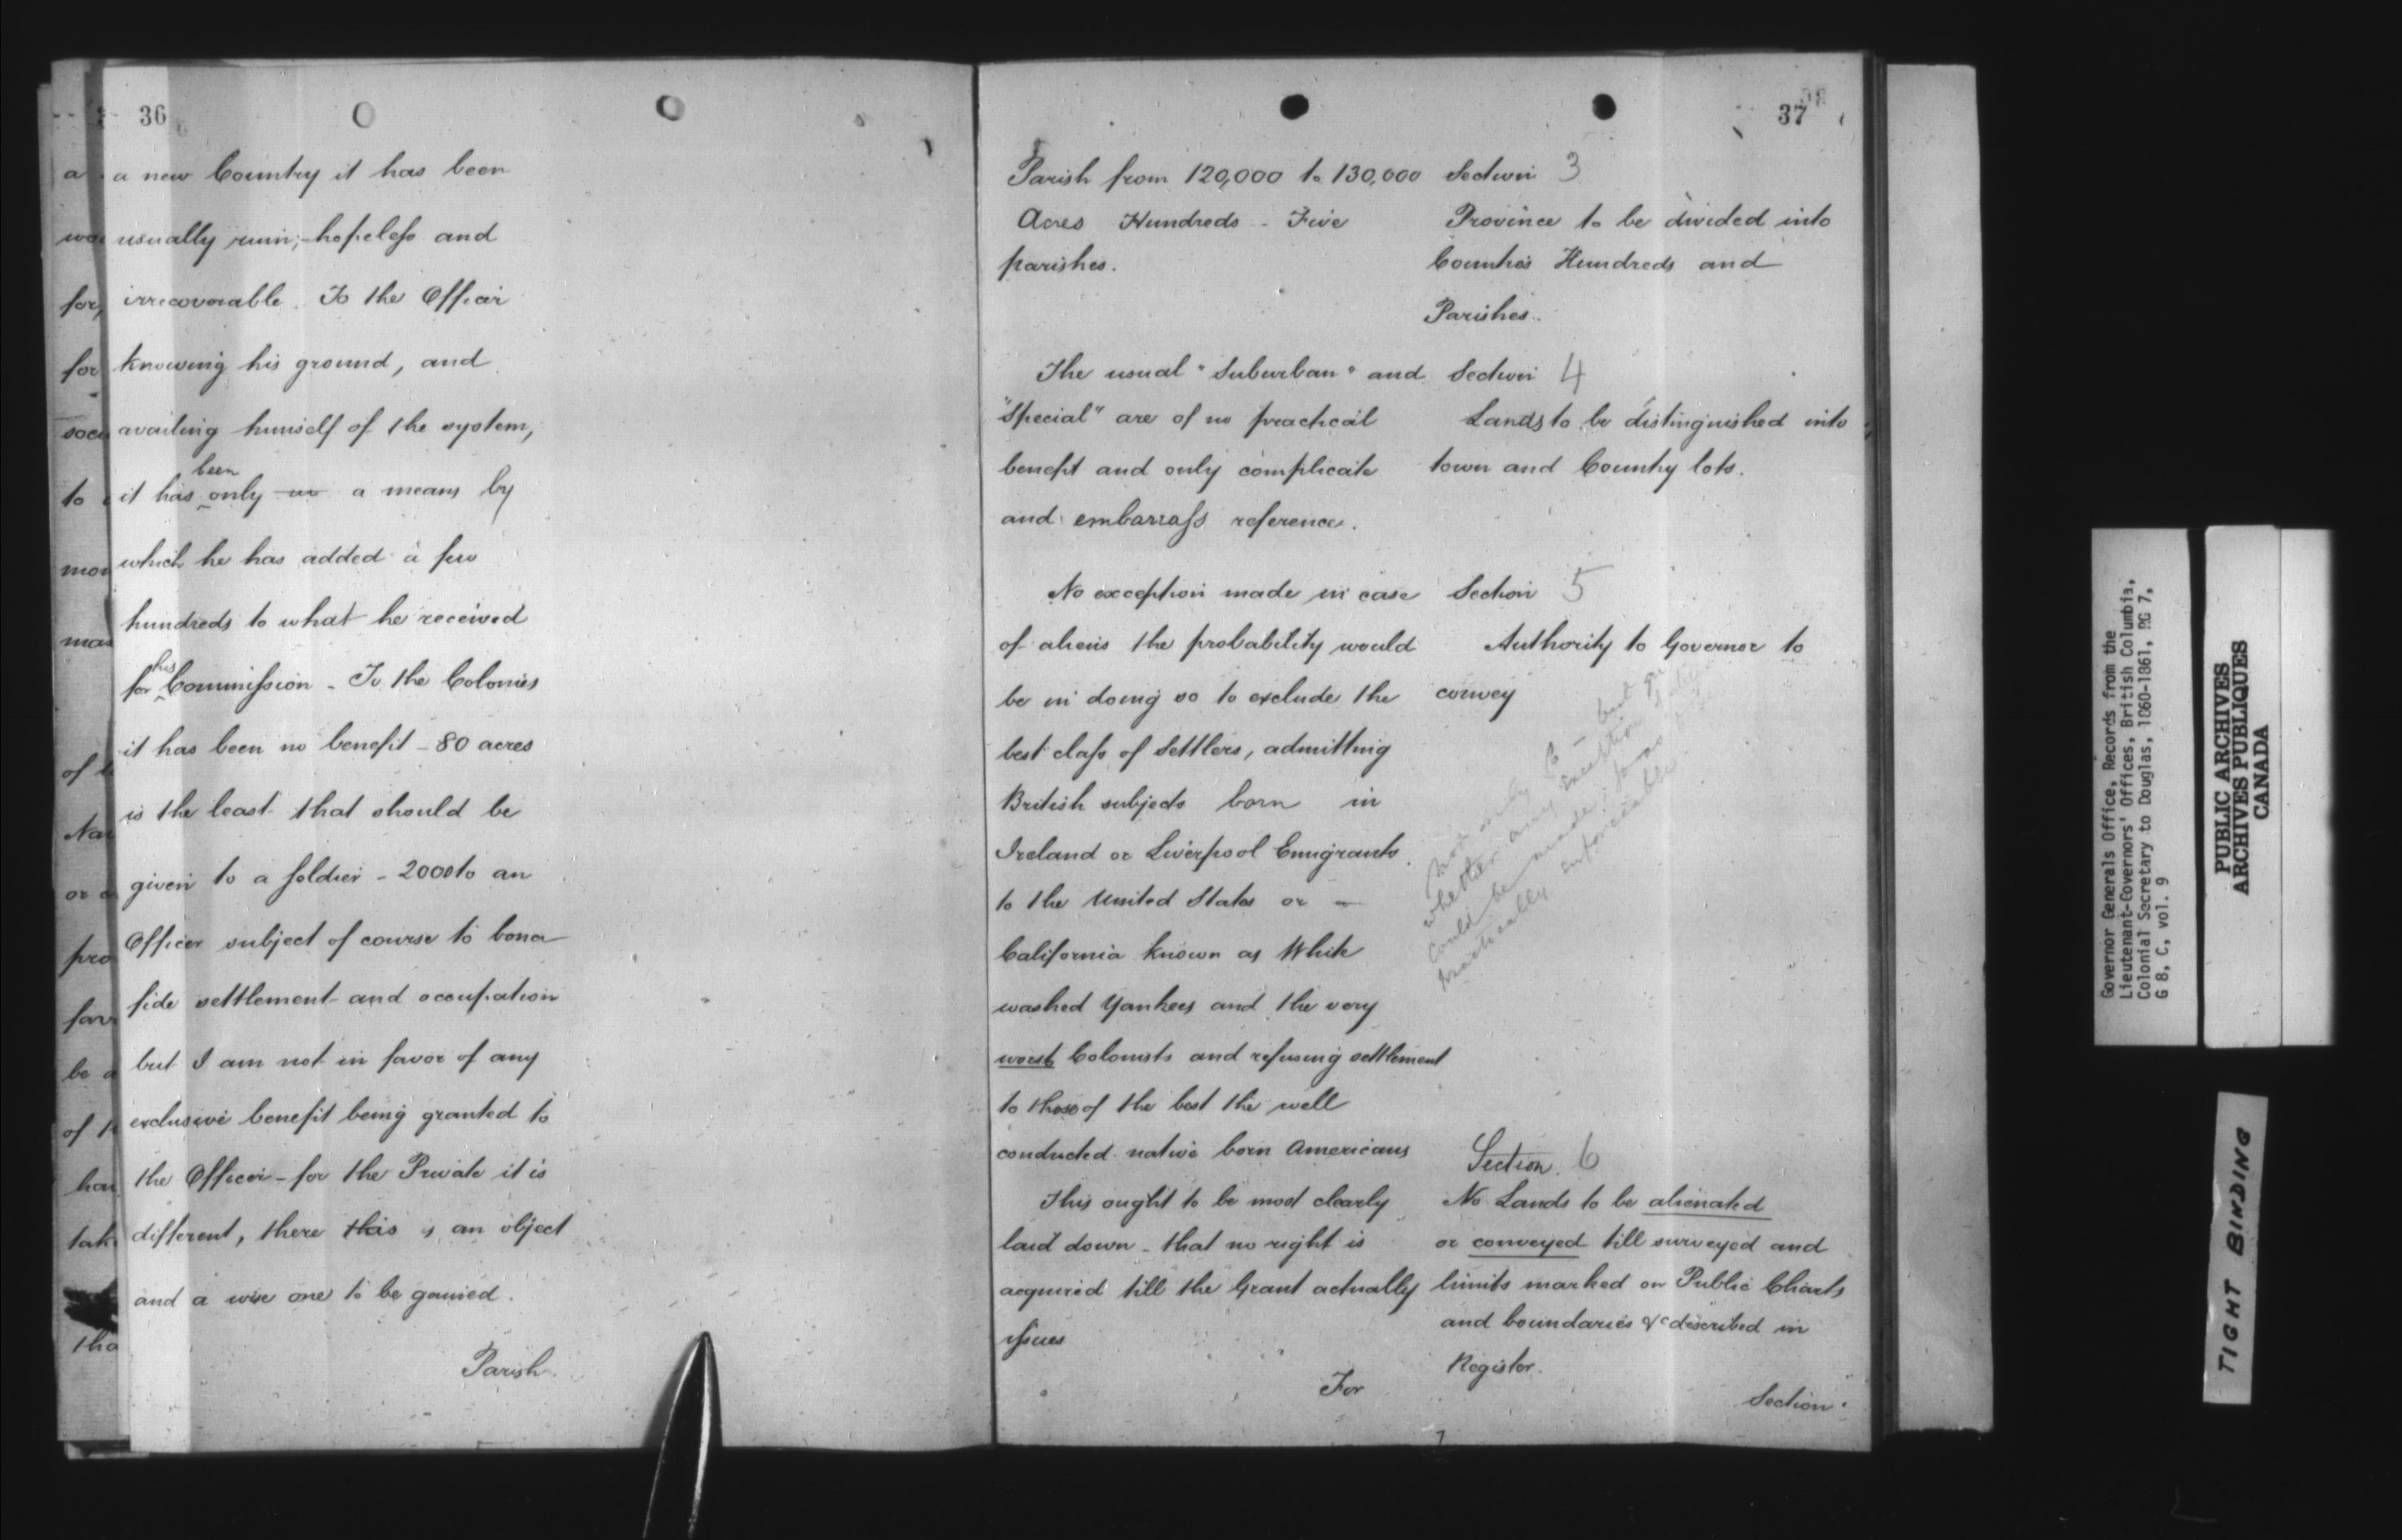 36
a new Country it has been
usually ruin;- hopeless and
irrecoverable. To the Officer
knowing his ground, and
availing himself of the system,
been
it has only a means by
which he has added a few
hundreds to what he received
his
for Commission - To the Colonies
it has been no benefit - 80 acres
is the least that should be
given to a soldier - 2000 to an
Officer subject of course to bona
fide settlement and occupation
but I am not in favor of any
exclusive benefit being granted to
the Officer - for the Private it is
different, there this is an object
and a wise one to be gained.
Parish.
37
Parish from 120,000 to 130,000
Acres Hundreds - Five
parishes.
The usual "Suburban" and
"Special" are of no practical
benefit and only complicate
and embarrass reference.
No exception made in case
of aliens the probability would
be in doing so to exclude the
best class of Settlers, admitting
British subjects born in
Ireland or Liverpool Emigrants
to the United States or
California known as White
washed Yankees and the very
worst Colonists and refusing settlement
to those of the best the well
conducted native born Americans
This ought to be most clearly
laid down - that no right is
acquired till the Grant actually
issues
For
Section 3
Province to be divided into
Counties Hundreds and
Parishes.
Section 4
Lands to be distinguished into
town and Country lots.
Section 5
Authority to Governor to
convey
whether any exception
could be made, so as
practically enforceable
Section. 6
No Lands to be alienated
or conveyed till surveyed and
limits marked on Public Charts
and boundaries &c described in
Register.
Section
Governor Generals Office, Records from the
Lieutenant-Governors' Offices, British Columbia,
Colonial Secretary to Douglas, 1860-1861, RG 7,
G 8, C, vol. 9
PUBLIC ARCHIVES
ARCHIVES PUBLIQUES
CANADA
TIGHT BINDING